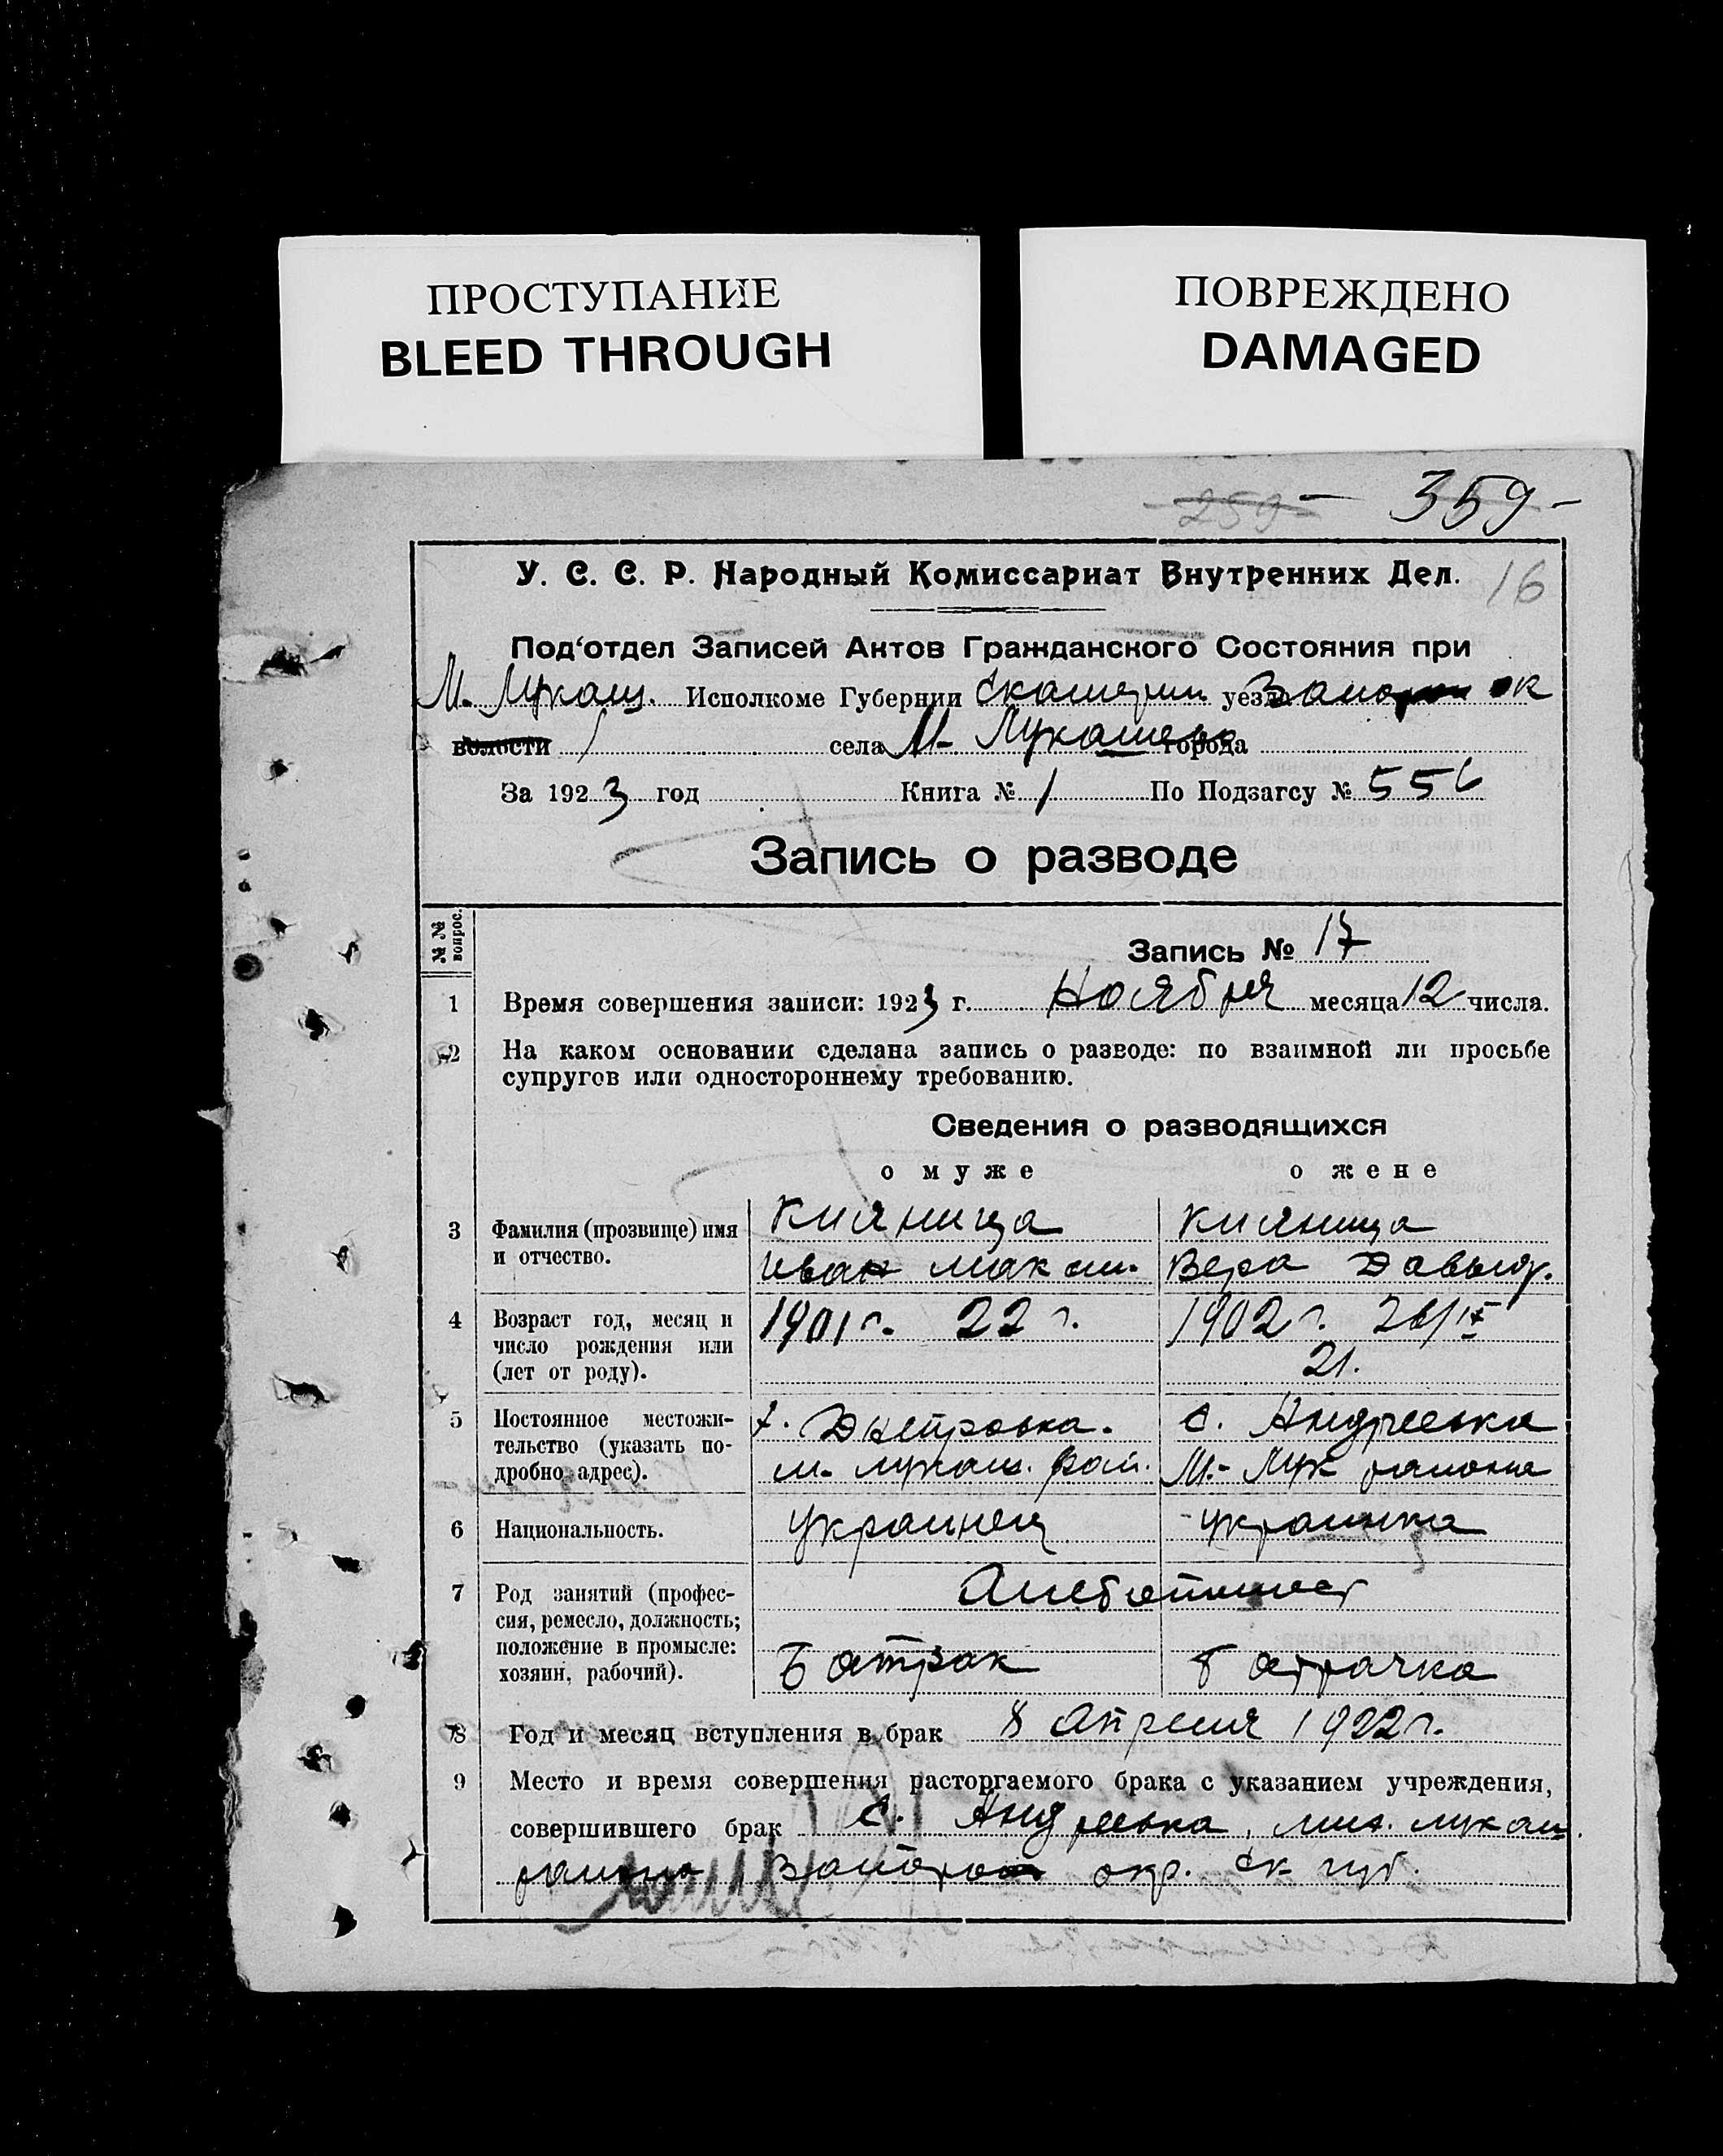 ПРОСТУПАНИЕ
BLEED THROUGH
ПОВРЕЖДЕНО
DAMAGED
259 - 359 -
У. С. С. Р. Народный Комиссариат Внутренних Дел. 16
Под'отдел Записей Актов Гражданского Состояния при
М. Лукаш. Исполкоме Губернии Екатерин уезда Запор ок
волости села М- Лукашево города
За 1923 год Книга № 1 По Подзагсу № 556
Запись о разводе
№№ вопрос.
Запись № 17
1 Время совершения записи: 1923 г. Ноября месяца 12 числа.
2 На каком основании сделана запись о разводе: по взаимной ли просьбе
супругов или одностороннему требованию.
Сведения о разводящихся
о муже о жене
3 Фамилия (прозвище) имя Кияница Кияница
и отчество. Иван Максим. Вера Давыд.
4 Возраст год, месяц и 1901 г. 22 г. 1902 г.
число рождения или 21.
(лет от роду).
5 Постоянное местожи- х. Днепровка. с. Андреевка
тельство (указать по- м. лукаш. рай. М.- Лук района
дробно адрес).
6 Национальность. украинец украинка
7 Род занятий (профес-
сия, ремесло, должность;
положение в промысле: Батрак батрачка
хозяин, рабочий).
8 Год и месяц вступления в брак 8 апреля 1922 г.
9 Место и время совершения расторгаемого брака с указанием учреждения,
совершившего брак с. Андреевка, лукаш.
района Запорож окр. Ек губ.